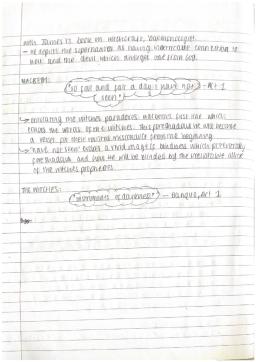 with James I's book on witchcraft, 'Daemonologie'.
- He depicts the supernatural as having inextricable connection to
hell and the devil, which diverges one from God.
MACBETH:
"So foul and fair a day I have not - Act 1
seen"
→ emulating the witches paradoxes. Macbeth's first line which
echoes the words of the witches. This foreshadows he will become
a victim to their
beginning
→ "have not seen" evokes a vivid image of blindness which potentially
foreshadows and how he will be blinded by the irresistible allure
of the witches prophecies.
THE WITCHES:
"instruments of darkness" - Banquo, Act 1